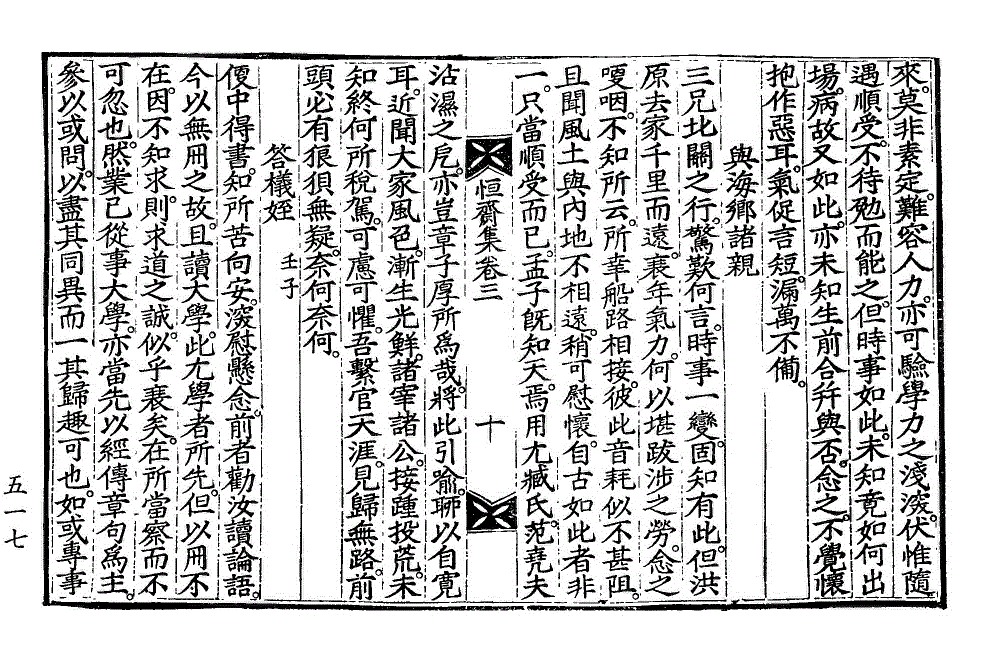 來。莫非素定。難容人力。亦可驗學力之淺深。伏惟隨
遇順受。不待勉而能之。但時事如此。未知竟如何出
場。病故又如此。亦未知生前合幷與否。念之。不覺懷
抱作惡耳。氣促言短。漏萬不備。
與海鄕諸親
三兄北關之行。驚歎何言。時事一變。固知有此。但洪
原去家千里而遠。衰年氣力。何以堪跋涉之勞。念之
哽咽。不知所云。所幸船路相接。彼此音耗似不甚阻。
且聞風土與內地不相遠。稍可慰懷。自古如此者非
一。只當順受而已。孟子旣知天。焉用尤臧氏。范堯夫
恒齋集卷三
十
沾濕之危。亦豈章子厚所爲哉。將此引喩。聊以自寬
耳。近聞大家風色。漸生光鮮。諸宰諸公。接踵投荒。未
知終何所稅駕。可慮可懼。吾繫官天涯。見歸無路。前
頭必有狼狽無疑。奈何奈何。
答檥姪 壬子
便中得書。知所苦向安。深慰懸念。前者勸汝讀論語。
今以無冊之故。且讀大學。此尤學者所先。但以冊不
在。因不知求。則求道之誠。似乎衰矣。在所當察而不
可忽也。然業已從事大學。亦當先以經傳章句爲主。
參以或問。以盡其同異而一其歸趣可也。如或專事
五一七